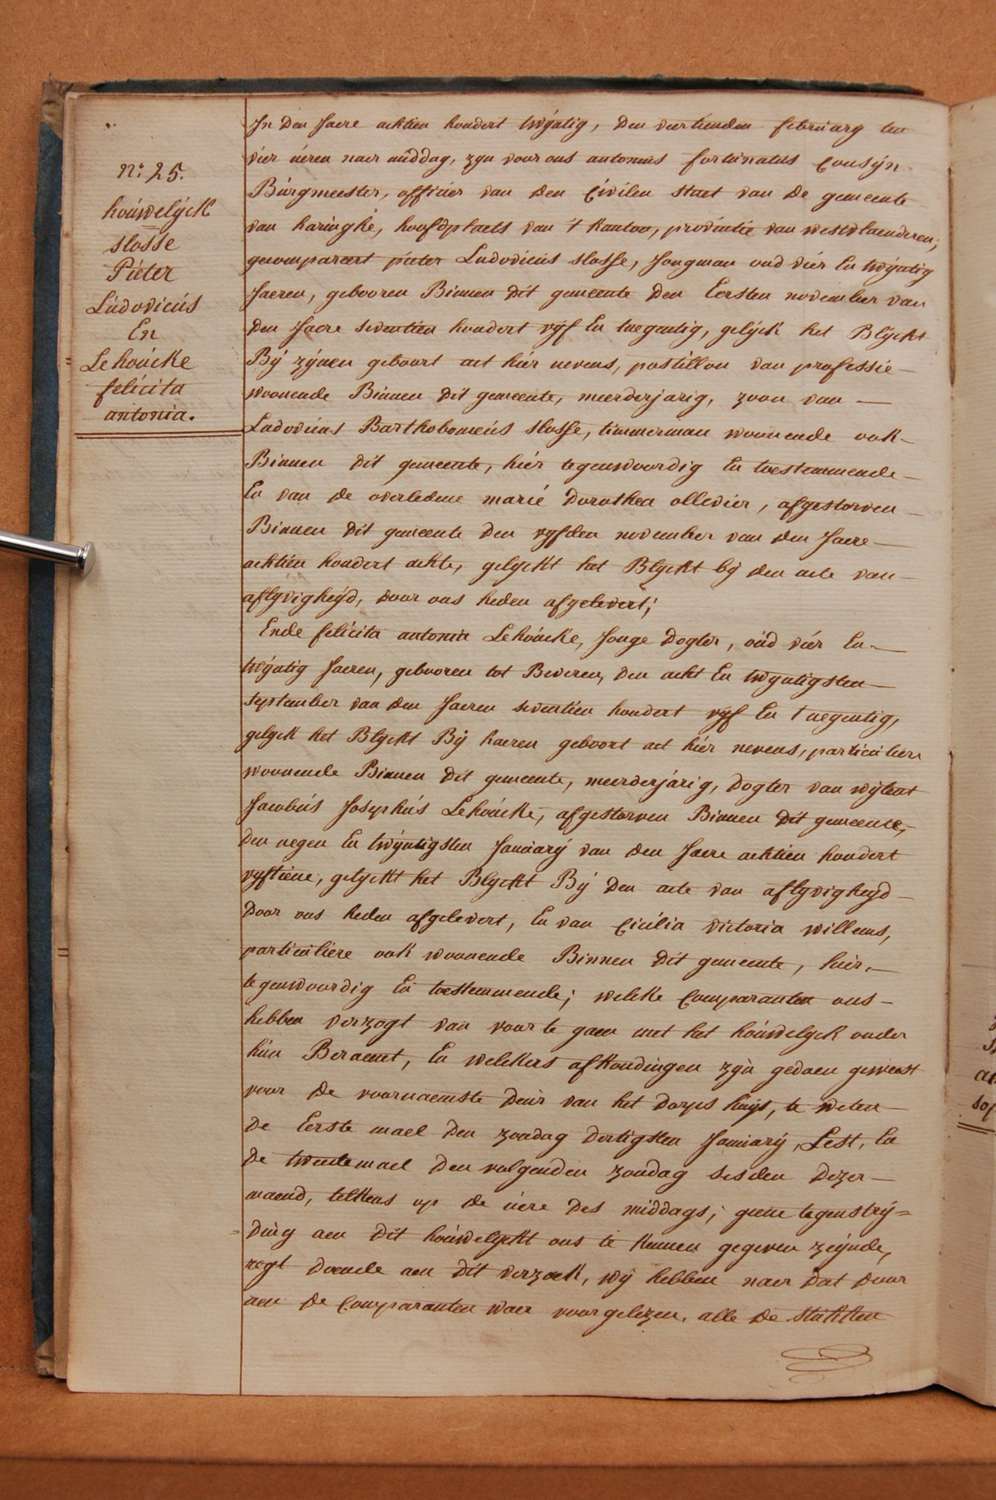 N: 25.
hoúwelÿck
slosse
Piéter
Lúdovicús
En
Lehoúcke
felicita
antonia.
In den Jaere achtien hondert twÿntig, den viertienden februarÿ ten
viér úéren naer middag, zÿn voor ons antonius fortúnatus Coúsÿn
Búrgmeester, officiér van den Civilen staet van de gemeente
van haringhé, hoofdplaets van 't kanton, provintie van westvlaenderen,
gecompareert piéter Ludovicús slosse, Jongman oud viér En twÿntig
Jaeren, gebooren Binnen dit gemeente den Eersten november van
den Jaere seventien hondert vÿf En tnegentig, gelÿck het Blÿckt
Bÿ zÿnen geboort act hiér nevens, postillon van professie
woonende Binnen dit gemeente, meerderjarig, zoon van
Ludovicus Bartholomeús slosse, timmerman woonende ook
Binnen dit gemeente, hiér tegenwoordig En toestemmende
En van de overledene marié dorothea ollevier, afgestorven
Binnen dit gemeente den vÿfden november van den Jaere
achtien hondert achte, gelÿckt het Blÿckt bÿ den acte van
aflÿvigheÿd, door ons heden afgelevert;
Ende felicita antonia Lehoúcke, Jonge dogter, oúd viér En
twÿntig Jaeren, gebooren tot Beveren, den acht En twÿntigsten
september van den Jaeren seventien hondert vÿf En tnegentig,
gelÿck het Blÿckt Bÿ haeren geboort act hiér nevens, particúliere
woonende Binnen dit gemeente, meerderjárig, dogter van wÿlent
Jacobús Josephús Lehoúcke, afgestorven Binnen dit gemeente,
den negen En twÿntigsten Januarÿ van den Jaere achtien hondert
vÿftiene, gelÿckt het Blÿckt Bÿ den acte van aflÿvigheÿd
door ons heden afgelevert, En van Cicilia victoria willems,
particúliére ook woonende Binnen dit gemeente, hiér
tegenwoordig En toestemmende; welcke Comparanten ons
hebben verzogt van voor te gaen met het hoúwelÿck onder
hún Beraemt, En welckers afkondingen zÿn gedaen geweest
voor de voornaemste deúr van het dorps huÿs, te weten
de Eerste mael den zondag dertigsten Januarÿ, Lest, En
de tweede mael den volgenden zondag sesden dezer
maend, telkens op de úére des middags; geene tegenstrÿ=
ding aen dit hoúwelÿckt ons te kennen gegeven zÿnde,
regt doende aen dit verzoek, wÿ hebben naer dat door
aen de Comparanten waer voorgelezen, alle de stúkken